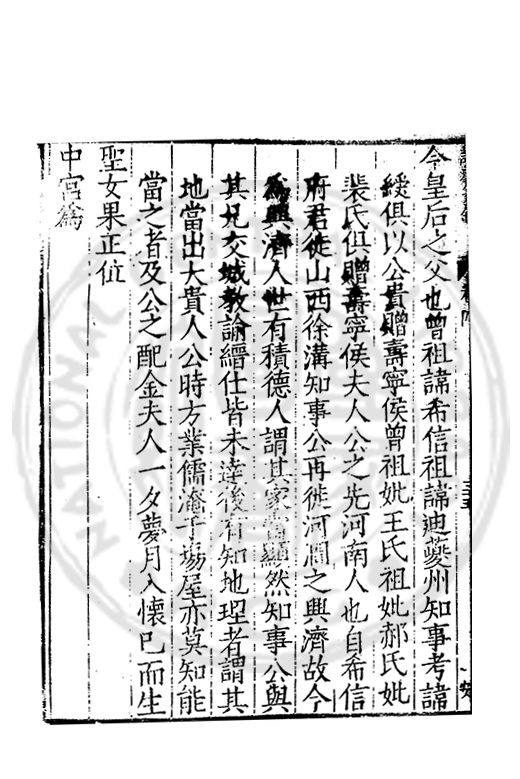 今皇后之父也曾祖諱希信祖諱迪夔州知事考諱
綬俱以公貴贈壽寧侯曾祖妣王氏祖妣郝氏妣
裴氏俱贈壽寧侯夫人公之先河南人也自希信
府君徙山西徐溝知事公再徙河澗之興濟故今
為興濟人世有積德人謂其家當顯然知事公與
其兄交城教諭縉仕皆未達後有知地理者謂其
地當出大貴人公時方業儒淹于場屋亦莫知能
當之者及公之配金夫人一夕夢月入懷巳而生
聖女果正位
中宮爲
卷
三十五
NATIONAL